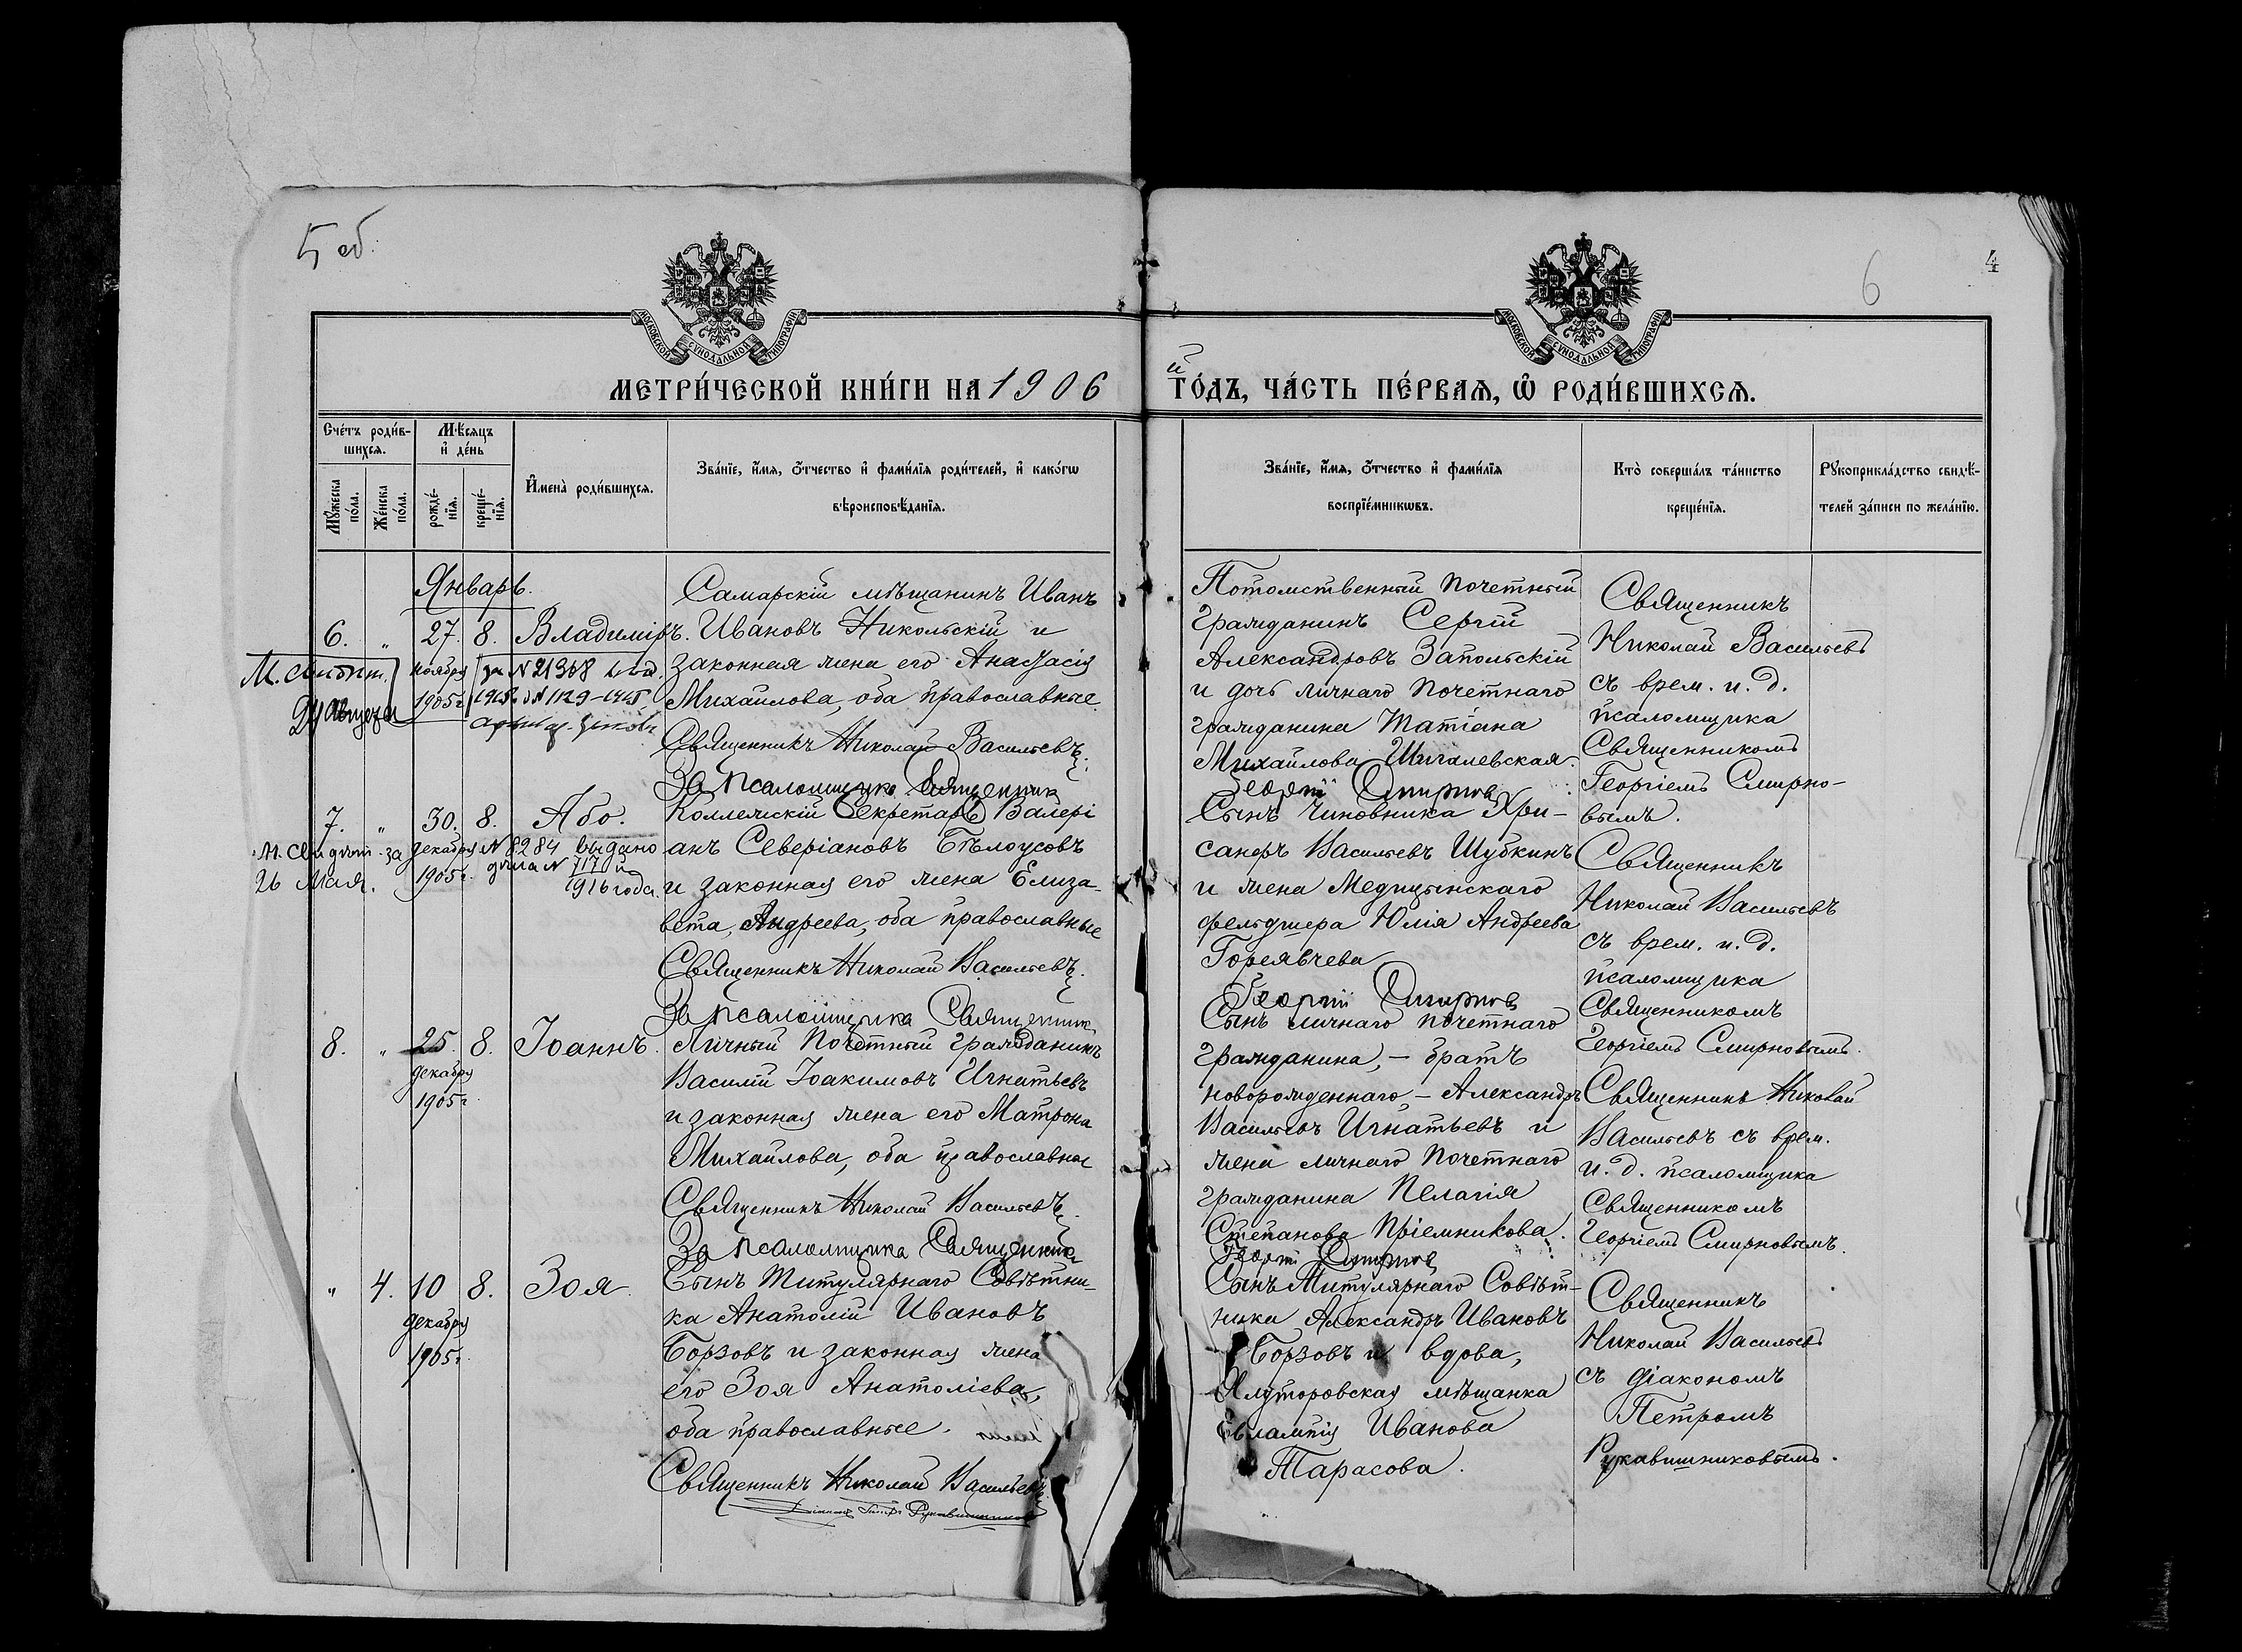 5 об.
6
4
МОСКОВСКОЙ СѴНОДАЛЬНОЙ ТИПОГРАФІИ
МОСКОВСКОЙ СѴНОДАЛЬНОЙ ТИПОГРАФІИ
МЕТРИ́ЧЕСКОЙ КНИ́ГИ НА 1906 й ГО́ДЪ, ЧА́СТЬ ПЕ́РВАѦ, Ѡ҆ РОДИ́ВШИХСѦ.
Сче́тъ роди́в-
шихсѧ.
Му́жеска по́ла.
Же́нска по́ла.
Мѣ́сѧцъ
и҆ де́нь
рожде́-
нїѧ.
креще́-
нїѧ.
И҆мена̀ роди́вшихсѧ.
Зва́нїе, и҆́мѧ, ѻ҆́тчество и҆ фами́лїѧ роди́телей, и҆ како́гѡ
вѣроисповѣ́данїѧ.
Зва́нїе, и҆́мѧ, ѻ҆́тчество и҆ фами́лїѧ
воспрїе́мникѡвъ.
Кто̀ соверша́лъ та́инство
креще́нїѧ.
Рꙋкоприкла́дство свидѣ́-
телей за́писи по жела́нїю.
Январь.
6. „ 27. 8. Владиміръ.
ноября
1905 г.
М. свидѣт.
за N 21368
29 Августа
Самарскій мѣщанинъ Иванъ
Ивановъ Никольскій и
законная жена его Анастасія
Михайлова, оба православные.
Священникъ Николай Васильевъ.
За псаломщика Священник
Георгій Смирнов
Потомственный почетный
гражданинъ Сергій
Александровъ Запольскій
и дочь личнаго почетнаго
гражданина Татіана
Михайлова Шигалевская.
Священникъ
Николай Васильевъ
съ врем. и. д.
псаломщика
Священникомъ
Георгіемъ Смирно-
вымъ.
7. „ 30. 8. Або.
декабря
1905 г.
М. свидѣт. за N 8284 выдано
26 Мая. дѣла N 717
1916 года.
Коллежскій Секретарь Валері
анъ Северіановъ Бѣлоусовъ
и законная его жена Елиза-
вета Андреева, оба православные
Священникъ Николай Васильевъ.
За псаломщика Священник
Георгій Смирнов
Сынъ чиновника Хри-
санфъ Васильевъ Шубкинъ
и жена Медицынскаго
фельдшера Юлія Андреева
Священникъ
Николай Васильевъ
съ врем. и. д.
псаломщика
Священникомъ
Георгіемъ Смирновымъ.
8. „ 25. 8. Іоаннъ.
декабря
1905 г.
Личный Почетный гражданинъ
Василій Іоакимовъ Игнатьевъ
и законная жена его Матрона
Михайлова, оба православные
Священникъ Николай Васильевъ.
За псаломщика Священник
Георгій Смирнов
Сынъ личнаго почетнаго
гражданина, – братъ
новорожденнаго, – Александръ
Васильевъ Игнатьевъ и
жена личнаго почетнаго
гражданина Пелагія
Степанова Пріемникова.
Священникъ Николай
Васильевъ съ врем.
и. д. псаломщика
Священникомъ
Георгіемъ Смирновымъ.
„ 4. 10 8. Зоя.
декабря
1905 г.
Сынъ Титулярнаго Совѣтни-
ка Анатолій Ивановъ
Борзовъ и законная жена
его Зоя Анатоліева,
оба православные.
Священникъ Николай Васильевъ.
Діаконъ Петръ Рукавишниковъ
Сынъ Титулярнаго Совѣт-
ника Александръ Ивановъ
Борзовъ и вдова,
Ялуторовская мѣщанка
Евлампія Иванова
Тарасова.
Священникъ
Николай Васильевъ
съ діакономъ
Петромъ
Рукавишниковымъ.